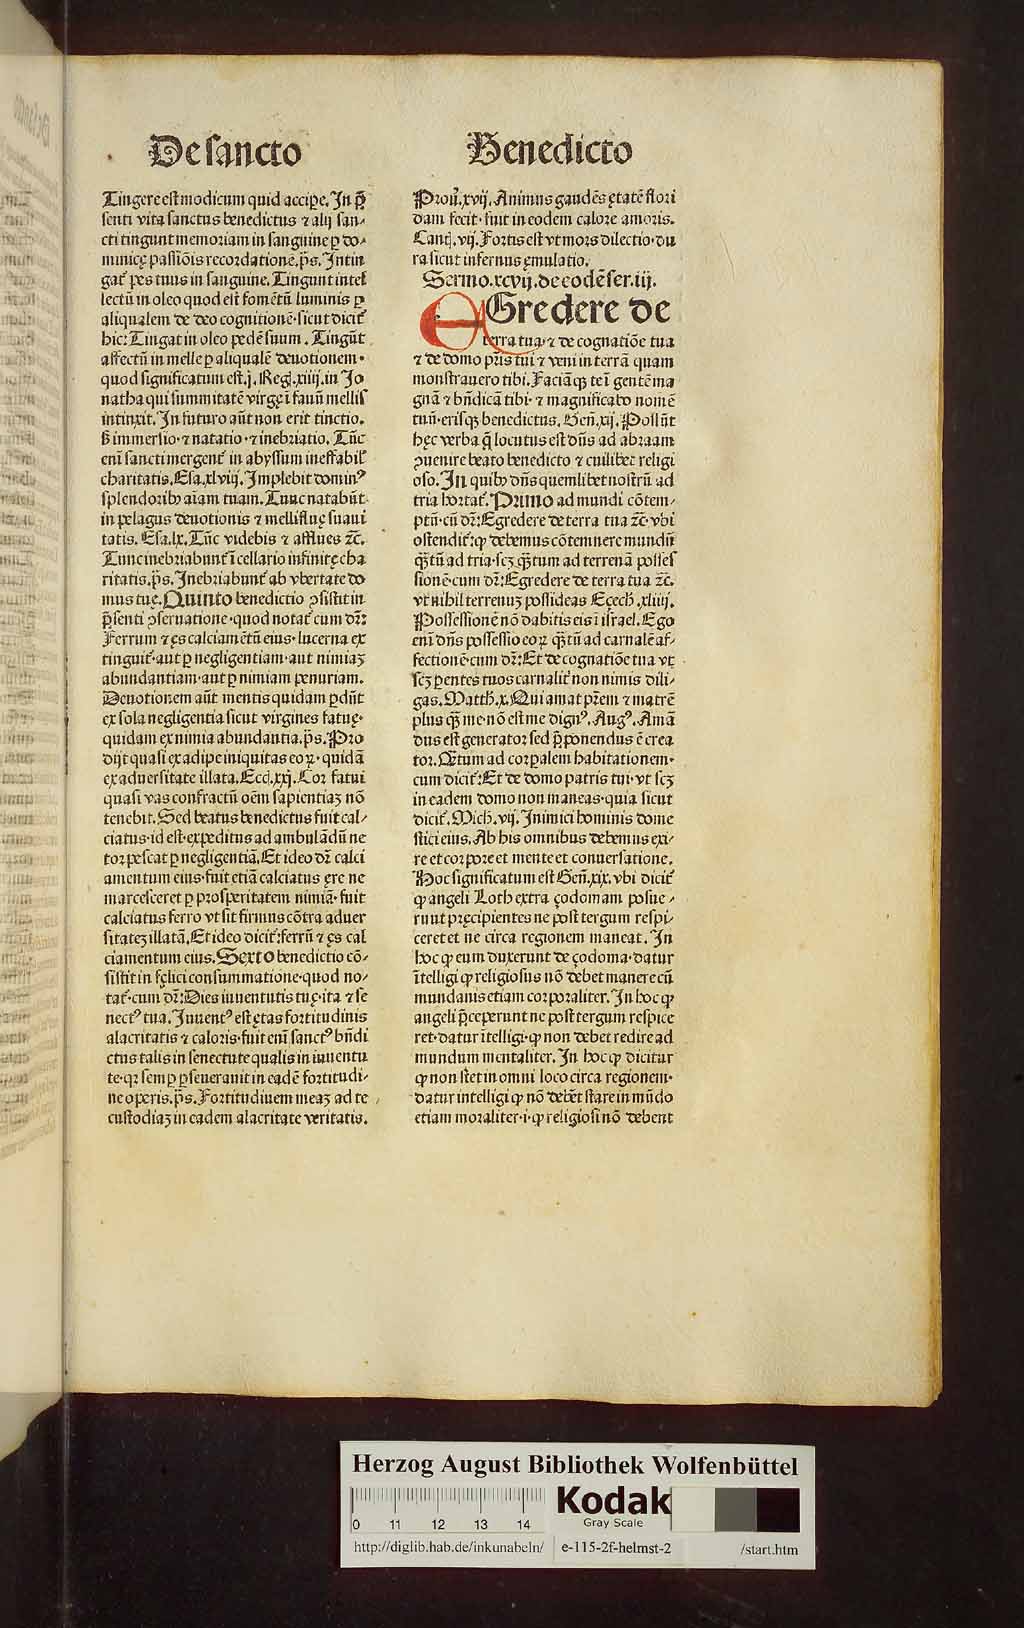 De sancto
Tingere est modicum quid accipe. In p̄
senti vita sanctus benedictus ⁊ alij san⸗
cti tingunt memoriam in sanguine ꝑ do⸗
minicę passiōis recordationē. p̄s. Intin
gat᷑ pes tuus in sanguine. Tingunt intel
lectū in oleo quod est fomētū luminis ꝑ
aliqualem de deo cognitionē· sicut dicit᷑
hic: Tingat in oleo pedē suum. Tingūt
affectū in melle ꝑ aliqualē deuotionem·
quod significatum est .j. Reg. xiiij. in Jo
natha qui summitatē virgę ī fauū mellis
intinxit. In futuro aūt non erit tinctio.
ß immersio· ⁊ natatio· ⁊ inebriatio. Tūc
enī sancti mergent᷑ in abyssum ineffabil᷑
charitatis. Esa. xlviij. Implebit dominꝰ
splendoribꝫ aīam tuam. Tunc natabūt
in pelagus deuotionis ⁊ mellifluę suaui
tatis. Esa. lx. Tūc videbis ⁊ afflues ⁊c̄.
Tunc inebriabunt᷑ ī cellario infinitę cha
ritatis. p̄s. Inebriabunt᷑ ab vbertate do
mus tuę. Quinto benedictio ꝯsistit in
p̄senti ꝯseruatione· quod notat᷑ cum dr̄:
Ferrum ⁊ ęs calciamētū eius· lucerna ex
tinguit᷑· aut ꝑ negligentiam· aut nimiaꝫ
abundantiam· aut ꝑ nimiam penuriam.
Deuotionem aūt mentis quidam ꝑdūt
ex sola negligentia sicut virgines fatuę·
quidam ex nimia abundantia. p̄s. Pro
dijt quasi ex adipe iniquitas eoꝝ· quidā
ex aduersitate illata. Ecc̄. xxj. Cor fatui
quasi vas confractū oēm sapientiaꝫ nō
tenebit. Sed beatus benedictus fuit cal⸗
ciatus· id est· expeditus ad ambulādū ne
torpescat ꝑ negligentiā. Et ideo dr̄ calci
amentum eius· fuit etiā calciatus ęre ne
marcesceret ꝑ prosperitatem nimiā· fuit
calciatus ferro vt sit firmus cōtra aduer
sitateꝫ illatā. Et ideo dicit᷑: ferrū ⁊ ęs cal
ciamentum eius. Sexto benedictio cō⸗
sistit in fęlici consummatione· quod no⸗
tat᷑· cum dr̄: Dies iuuentutis tuę· ita ⁊ se
nectꝰ tua. Iuuentꝰ est ętas fortitudinis
alacritatis ⁊ caloris· fuit enī sanctꝰ bn̄di
ctus talis in senectute qualis in iuuentu
te· qꝛ semꝑ ꝑseuerauit in eadē fortitudi⸗
ne operis. p̄s. Fortitudinem meaꝫ ad te
custodiaꝫ in eadem alacritate veritatis.
Benedicto
Prou̾. xvij. Animus gaudēs ętatē flori
dam fecit· fuit in eodem calore amoris.
Cant̄. vij. Fortis est vt mors dilectio· du
ra sicut infernus ęmulatio.
Sermo. xcvij. de eodē ser. iij.
EGredere de
terra tua· ⁊ de cognatiōe tua
⁊ de domo pr̄is tui ⁊ veni in terrā quam
monstrauero tibi. Faciāqꝫ te ī gentē ma
gnā ⁊ bn̄dicā tibi· ⁊ magnificabo nomē
tuū· erisqꝫ benedictus. Gen̄. xij. Possūt
hęc verba q̄ locutus est dn̄s ad abraam
ꝯuenire beato benedicto ⁊ cuilibet religi
oso. In quibꝫ dn̄s quemlibet nostrū ad
tria hortat᷑. Primo ad mundi cōtem⸗
ptū· cū dr̄: Egredere de terra tua ⁊c̄· vbi
ostendit᷑: ꝙ debemus cōtemnere mundū
qꝫ̄tū ad tria· scꝫ qꝫ̄tum ad terrenā posses
sionē· cum dr̄: Egredere de terra tua ⁊c̄.
vt nihil terrenuꝫ possideas Eęech. xliiij.
Possessionē nō dabitis eis ī israel. Ego
enī dn̄s possessio eoꝝ qꝫ̄tū ad carnalē af⸗
fectionē· cum dr̄: Et de cognatiōe tua vt
scꝫ ꝑentes tuos carnalit᷑ non nimis dili⸗
gas. Matth. x. Qui amat pr̄em ⁊ matrē
plus qꝫ̄ me· nō est me dignꝰ. Augꝰ. Amā
dus est generator sed p̄ponendus ē crea
tor. Q̄tum ad corꝑalem habitationem·
cum dicit᷑: Et de domo patris tui· vt scꝫ
in eadem domo non maneas· quia sicut
dicit᷑. Mich. vij. Inimici hominis dome
stici eius. Ab his omnibus debemus exi⸗
re et corpore et mente et conuersatione.
Hoc significatum est Gen̄. xix. vbi dicit᷑
ꝙ angeli Loth extra ęodomam posue⸗
runt pręcipientes ne post tergum respi⸗
ceret et ne circa regionem maneat. In
hoc ꝙ eum duxerunt de ęodoma· datur
ītelligi ꝙ religiosus nō debet manere cū
mundanis etiam corporaliter. In hoc ꝙ
angeli p̄ceperunt ne post tergum respice
ret· datur ītelligi· ꝙ non debet redire ad
mundum mentaliter. In hoc ꝙ dicitur
ꝙ non stet in omni loco circa regionem·
datur intelligi ꝙ nō debet stare in mūdo
etiam moraliter· i· ꝙ religiosi nō debent
Herzog August Bibliothek Wolfenbüttel
Kodak
Gray Scale
0 11 12 13 14
http://diglib.hab.de/inkunabeln/ e-115-2f-helmst-2 /start.htm